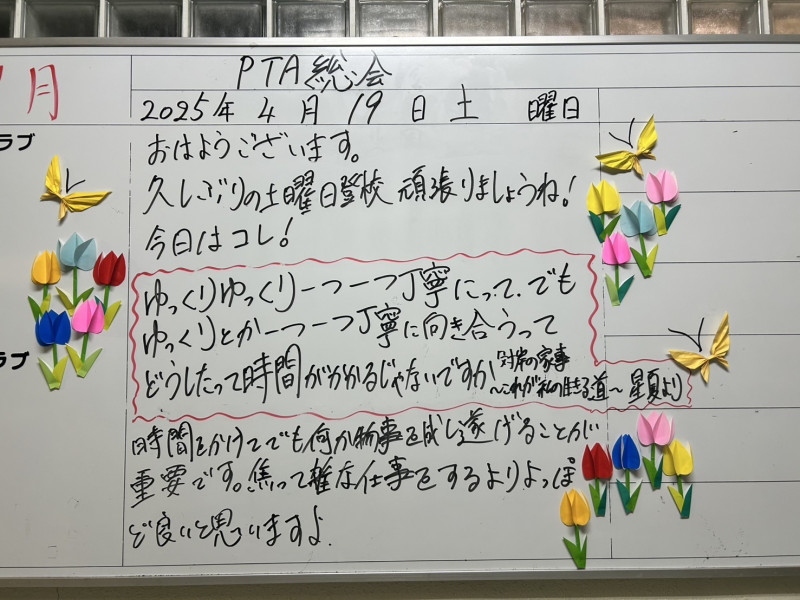 月
ラブ
ラブ
PTA総会
2025年 4月 19日 土 曜日
おはようございます。
久しぶりの土曜日登校 頑張りましょうね!
今日はコレ!
ゆっくりゆっくり一つ一つ丁寧にって。でも
ゆっくりとか一つ一つ丁寧に向き合うって
どうしたって時間がかかるじゃないですか
「対岸の家事
～これが私の生きる道～ 星夏より
時間をかけてでも何か物事を成し遂げることが
重要です。焦って雑な仕事をするよりよっぽ
ど良いと思いますよ